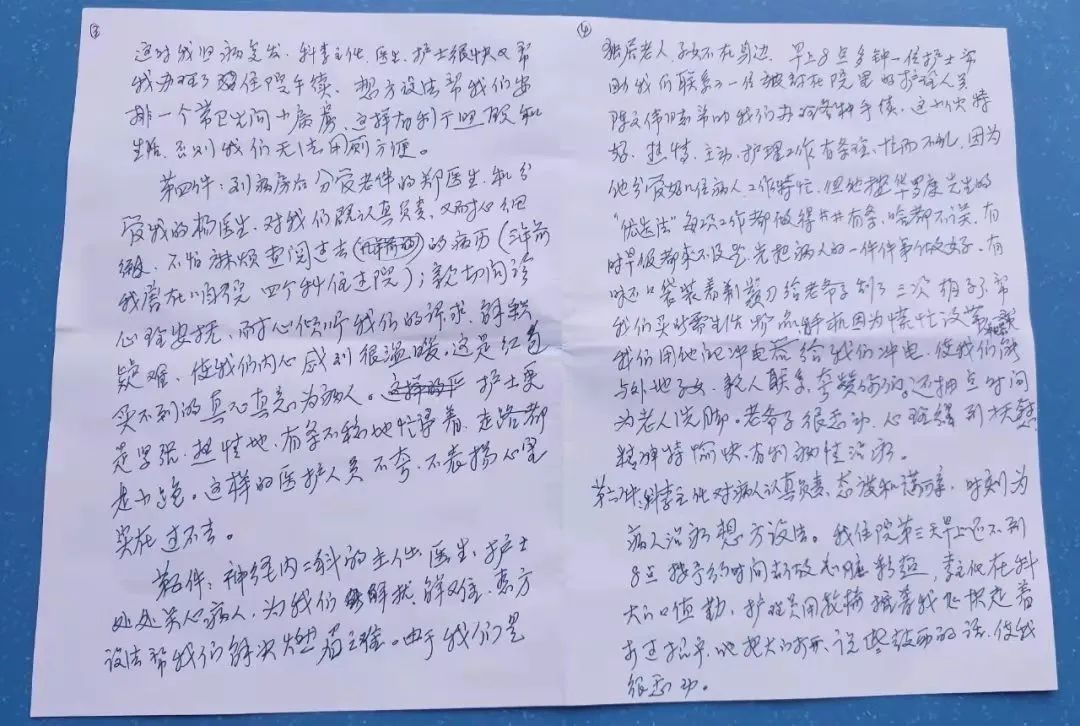 ③
这时我旧病复发,科李主任、医生、护士很快又帮
我办理了住院手续,想方设法帮我们安
排一个带卫生间小病房,这样有利于照顾和
生活,否则我们无法用厕方便。
第四件:到病房后分管老伴的郑医生,和分
管我的杨医生,对我们既认真负责,又耐心细
致,不怕麻烦查阅过去的病历(三年前
我曾在咱院四个科住过院);亲切问诊
心理安抚,耐心倾听我们的诉求,解释
疑难,使我们内心感到很温暖,这是红包
买不到的真心真意为病人。护士更
是紧张,热性地,有条不稳地忙得着,走路都
是小跑。这样的医护人员不夸,不表扬心里
实在过不去。
第五件:神经内二科的主任、医生、护士
处处关心病人,为我们解忧,解难,想方
设法帮我们解决燃眉之难。由于我们是
④
独居老人,子女不在身边,早上8点多钟一位护士帮
助我们联系了一位被称在院里的护理人员
陈文伟同志帮助我们办理各种手续,这小伙特
好,热情,主动,护理工作有条理,忙而不乱,因为
他分管好几位病人,工作特忙,但他把华罗庚先生的
“优选法”每次工作都做得井井有条,啥都不误,有
时早饭都来不及吃,先把病人的一件件事做好,有
时还口袋装着剃须刀给老爷子刮了三次胡子,帮
我们买些需生活物品,手机因为慌忙没带
我们用他的冲电器给我们冲电,使我们能
与外地子女、亲人联系,还抽点时间
为老人洗脚。老爷子很感动,
精神特愉快,有利于治疗。
第六件,科李主任对病人认真负责,态度和蔼可亲,时刻为
病人治病想方设法。我住院第三天早上还不到
8点按予约时间去做心脏彩超,李主任在科
大门口值勤,护理员用轮椅推着我飞快走着
打过招乎,她把大门打开,说些鼓励的话,使我
很感动。